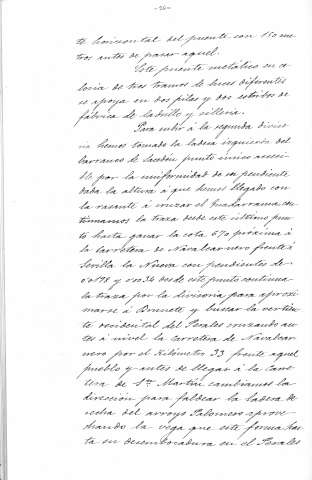 -26-
te horizontal del puente con 150 me
tros antes de pasar aquel.
Este puente metálico en ce
losia de tres tramos de luces diferentes
se apoya en dos pilas y dos estribos de
fábrica de ladrillo y sillería.
Para subir á la segunda diviso
ria hemos tomado la ladera izquierda del
barranco de Sacedón punto único accesi
ble por la uniformidad de su pendiente
dada la altura á que hemos llegado con
la rasante á cruzar el Guadarrama con
tinuamos la traza desde este último pun
to hasta ganar la cota 670 próxima á
la carretera de Navalcarnero frente á
Sevilla la Nueva con pendientes de
0'0178 y desde este punto continua
la traza por la divisoria para aproxi
marse á Brunete y buscar la vertien
te occidental del Perales cruzando an
tes á nivel la carretera de Navalcar
nero por el Kilómetro 33 frente aquel
pueblo y antes de llegar á la Carre
tera de Sn. Martin cambiamos la
dirección para faldear la ladera de
recha del arroyo Palomero aprove
chando la vega que este forma has
ta su desembocadura en el Perales